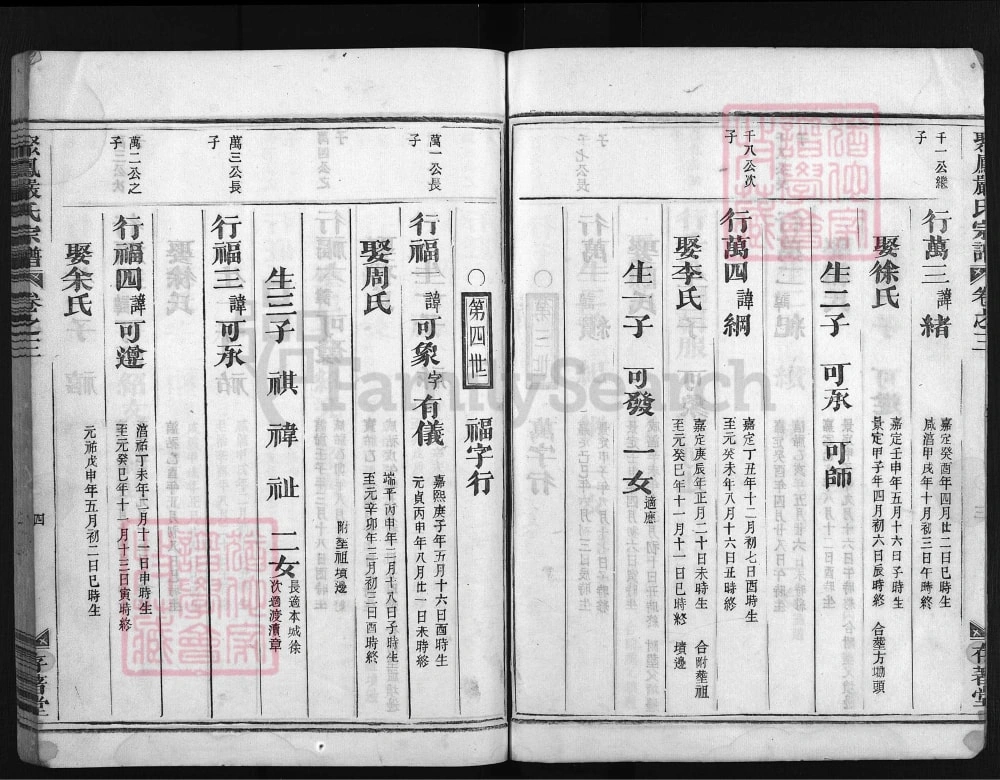 聚鳳嚴氏宗譜 卷之三
千一公繼
子
行萬三 諱緒
嘉定癸酉年四月廿二日巳時生
咸淳甲戌年十月初三日午時終
娶徐氏
嘉定壬申年五月十六日子時生
景定甲子年四月初六日辰時終
合塟方塘頭
生二子 可承 可師
千八公次
子
行萬四 諱綱
嘉定丁丑年十二月初七日酉時生
至元癸未年八月十六日丑時終
娶李氏
嘉定庚辰年正月二十日未時生
至元癸巳年十一月十一日巳時終
合附塟祖
墳邊
生一子 可發 一女
適應
存著堂
第四世 福字行
萬一公長
子
行福一 諱可象 字有儀
嘉熙庚子年五月十六日酉時生
元貞丙申年八月廿一日未時終
娶周氏
端平丙申年三月十八日子時生
至元辛卯年三月初三日酉時終
附塟祖墳邊
生三子 祺 禕 祉 二女
長適本城徐
次適渡瀆章
萬三公長
子
行福三 諱可承
萬二公之
子
行福四 諱可遵
淳祐丁未年二月十一日申時生
至元癸巳年十一月十三日寅時終
娶余氏
元祐戊申年五月初二日巳時生
聚鳳嚴氏宗譜 卷之三
四
存著堂
FamilySearch